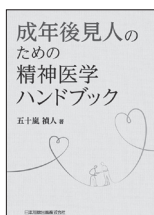 成年後見人の
ための
精神医学
ハンドブック
五十嵐 禎人 著